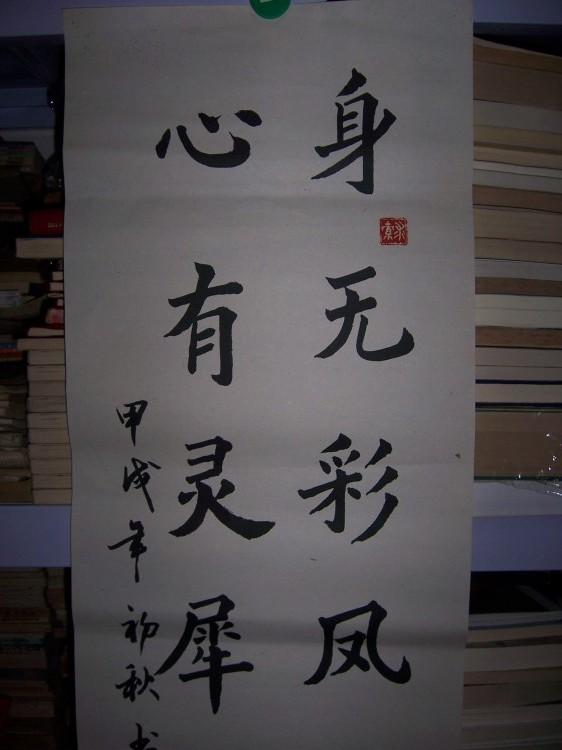 身无彩凤
心有灵犀
甲戌年初秋书